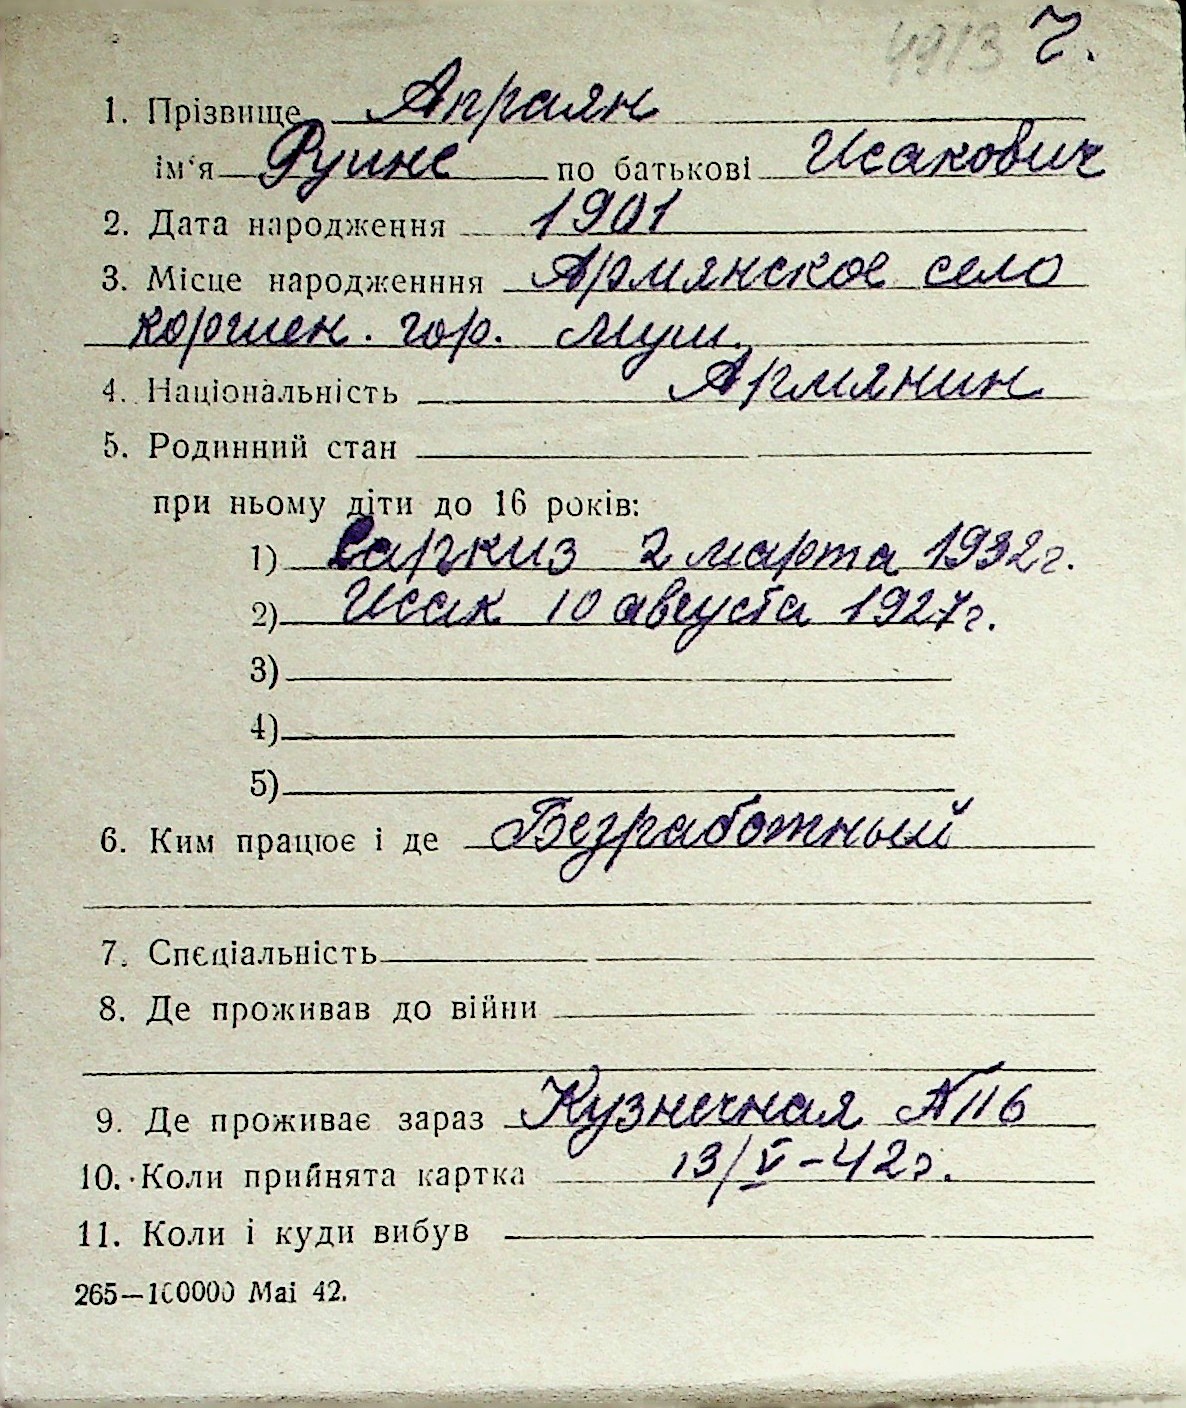 4913 Ч.
1. Прізвище Апраян
ім'я Рупне по батькові Исакович
2. Дата народження 1901
3. Місце народженння Армянское село
коршен. гор. Муш.
4. Національність Армянин
5. Родинний стан
при ньому діти до 16 років:
1) Саркиз 2 марта 1932г.
2) Исак 10 августа 1927г.
3)
4)
5)
6. Ким працює і де Безработный
7. Спєціальність
8. Де проживав до війни
9. Де проживає зараз Кузнечная № 116
10. Коли прийнята картка 13/V-42г.
11. Коли і куди вибув
265—100000 Маі 42.